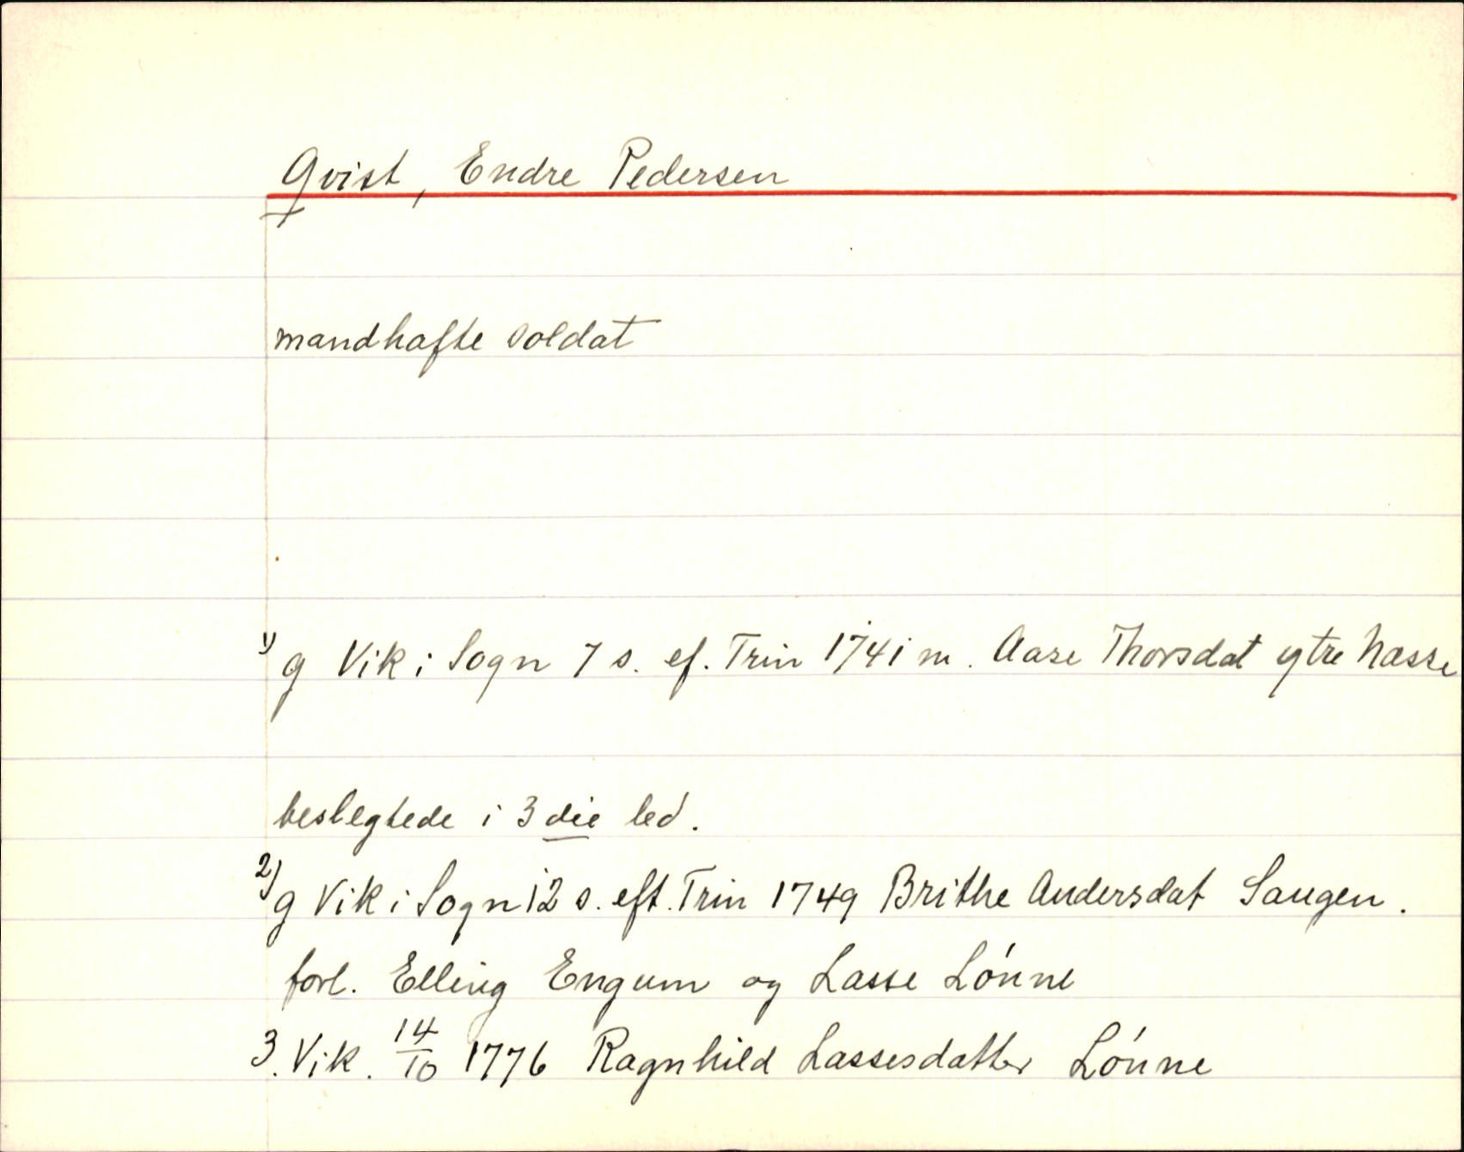 Qvist, Endre Pedersen
mandhafte soldat
1) g Vik i Sogn 7 s. ef. Trin 1741 m. Aase Thorsdat ytre Næsse
beslegtede i 3 die led.
2) g Vik i Sogn 12 s. eft. Trin 1749 Brithe Andersdat Saugen.
forl. Elling Engum og Lasse Lónne
3. Vik. 14/10 1776 Ragnhild Lassesdatter Lónne